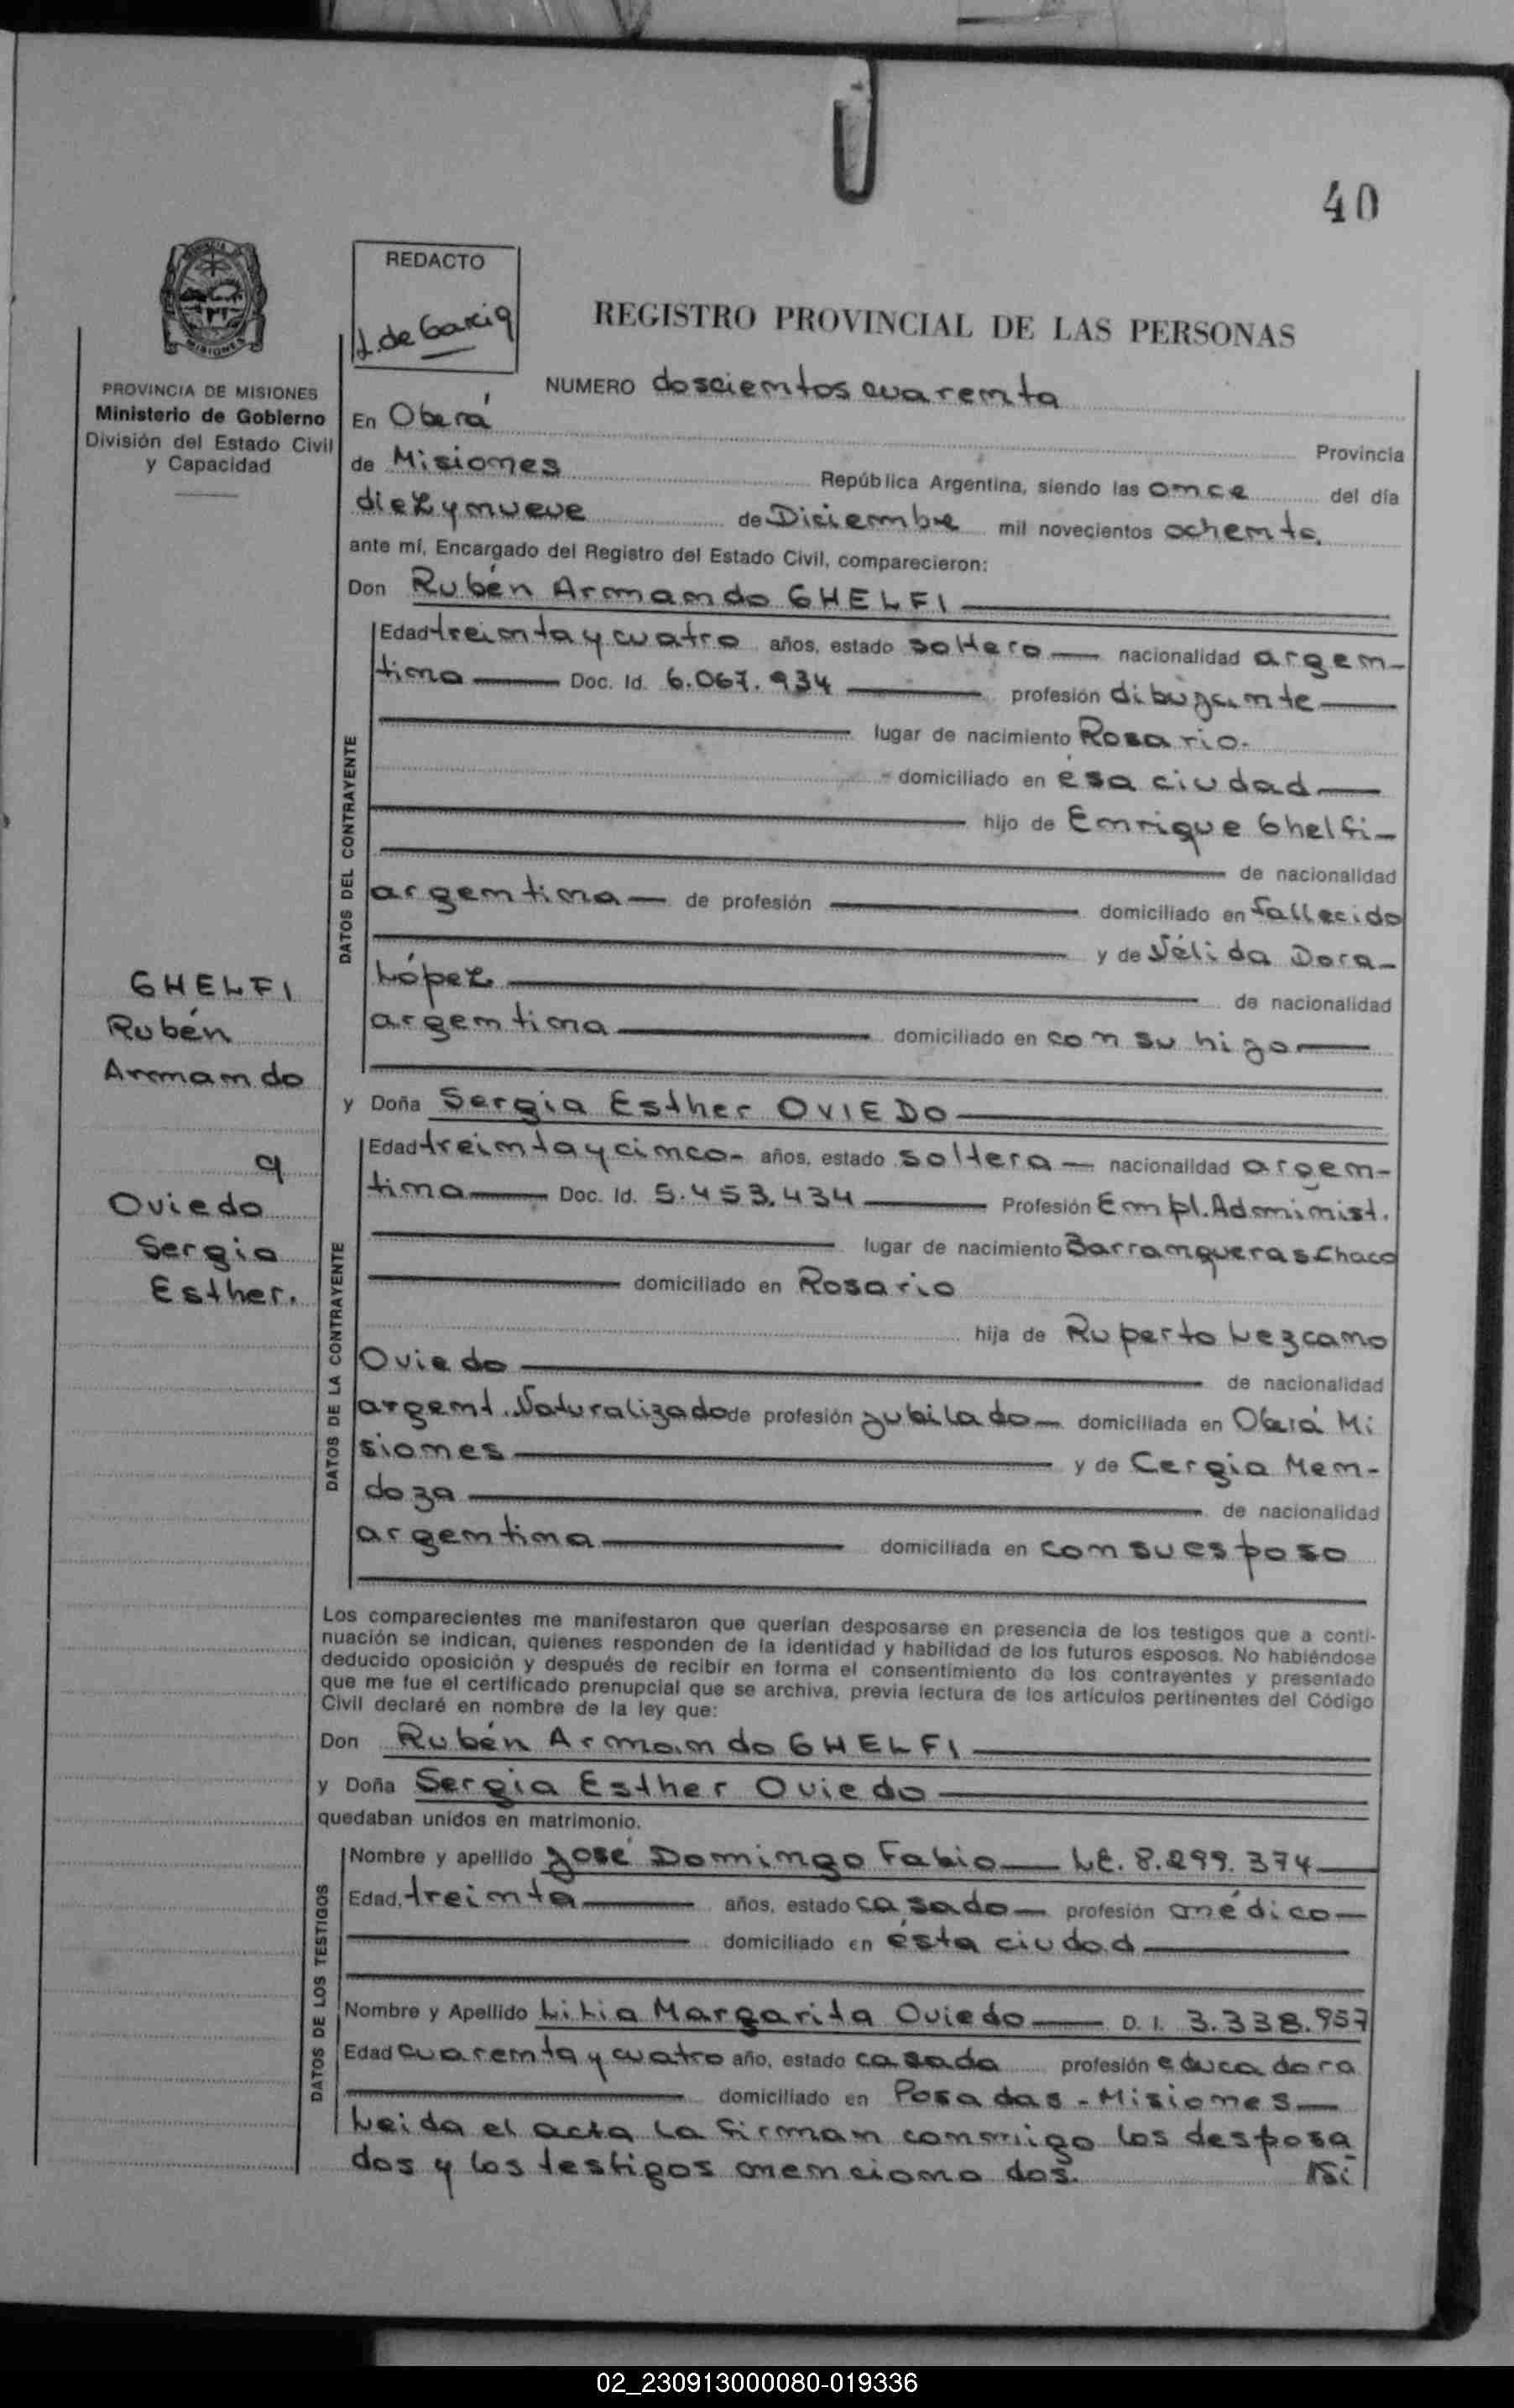 40
REDACTO
J. de Garcia
REGISTRO PROVINCIAL DE LAS PERSONAS
PROVINCIA DE MISIONES
Ministerio de Gobierno
División del Estado Civil
y Capacidad
NUMERO doscientos cuarenta
En Oberá
Provincia
de Misiones República Argentina, siendo las once del día
diez y nueve de Diciembre mil novecientos ochenta
ante mí, Encargado del Registro del Estado Civil, comparecieron:
Don Rubén Armando GHELFI
DATOS DEL CONTRAYENTE
Edad treinta y cuatro años, estado soltero nacionalidad argen-
tina Doc. Id. 6.067.934 profesión dibujante
lugar de nacimiento Rosario.
domiciliado en ésa ciudad
hijo de Enrique Ghelfi
de nacionalidad
argentina de profesión domiciliado en fallecido
y de Nélida Dora
López de nacionalidad
argentina domiciliado en con su hijo
GHELFI
Rubén
Armando
y Doña Sergia Esther OVIEDO
DATOS DE LA CONTRAYENTE
Edad treinta y cinco años, estado soltera nacionalidad argen-
tina Doc. Id. 5.453.434 Profesión Empl. Administ.
lugar de nacimiento Barranqueras Chaco
domiciliado en Rosario
hija de Ruperto Lezcano
Oviedo de nacionalidad
argent. Naturalizado de profesión jubilado domiciliada en Oberá Mi
siones y de Cergia Men-
doza de nacionalidad
argentina domiciliada en con su esposo
y
Oviedo
Sergia
Esther.
Los comparecientes me manifestaron que querían desposarse en presencia de los testigos que a conti-
nuación se indican, quienes responden de la identidad y habilidad de los futuros esposos. No habiéndose
deducido oposición y después de recibir en forma el consentimiento de los contrayentes y presentado
que me fue el certificado prenupcial que se archiva, previa lectura de los artículos pertinentes del Código
Civil declaré en nombre de la ley que:
Don Rubén Armando GHELFI
y Doña Sergia Esther Oviedo
quedaban unidos en matrimonio.
DATOS DE LOS TESTIGOS
Nombre y apellido José Domingo Fabio L.E. 8.299.374
Edad, treinta años, estado casado profesión médico
domiciliado en ésta ciudad
Nombre y Apellido Lilia Margarita Oviedo D. I. 3.338.957
Edad cuarenta y cuatro año, estado casada profesión educadora
domiciliado en Posadas - Misiones
Leida el acta la firman conmigo los desposa
dos y los testigos mencionados.
02_230913000080-019336